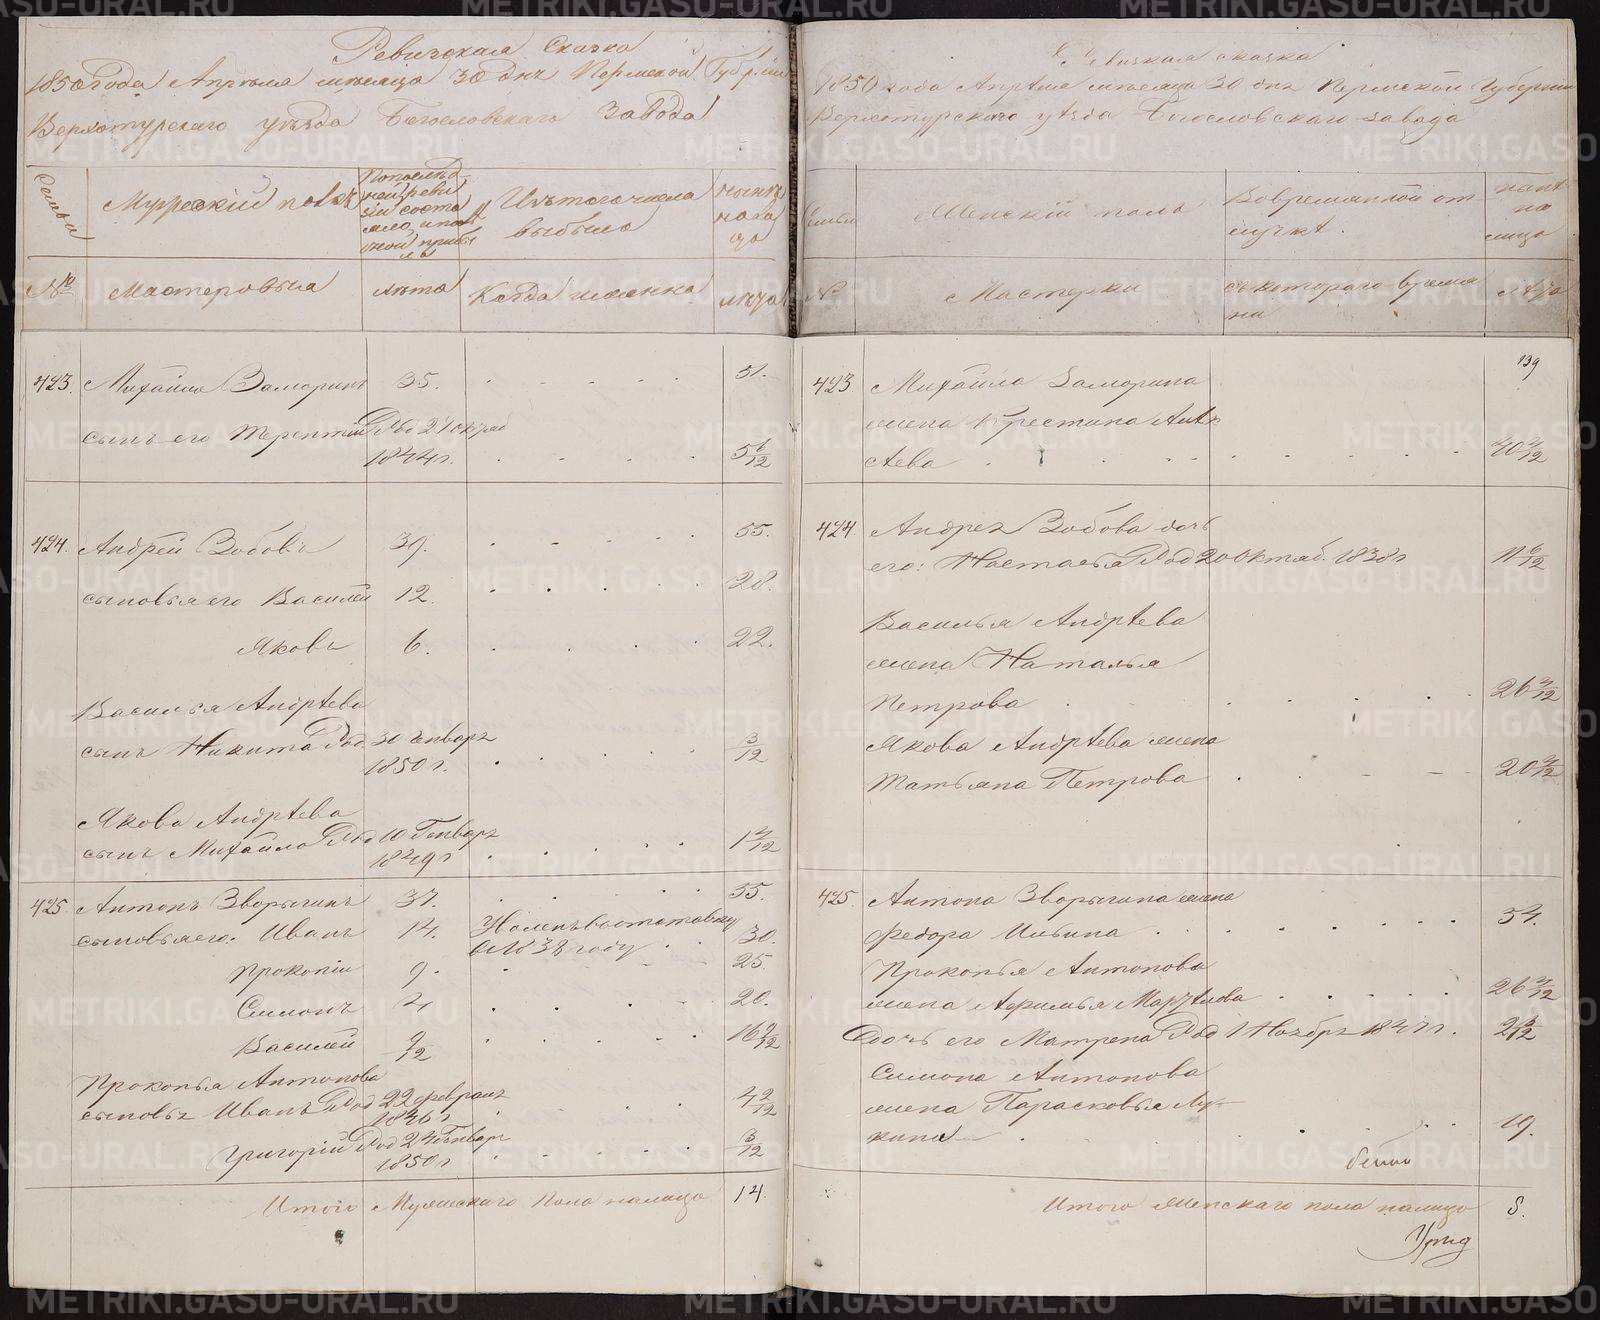 Ревизская Сказка
1850 Года Апреля месяца 30 дня Пермской Губернiи
Верхотурскаго уезда Богословскаго Завода
Семьи
Мужескiй полъ
По последней ревизiи состояло, и после оной прибыло
Изъ того числа выбыло
Ныне на лицо
№
Мастеровыя
лѣта
Когда именно
лѣта
423. Михайло Заморинъ 35. 51.
сынъ его Терентiй Род 21 окряб
1844 г. 5 6/12
424. Андрей Зобовъ 39. 55.
сыновья его Василей 12. 28.
Яковъ 6. 22.
Василья Андрѣева
сынъ Никита Род 30 Генваря
1850 г. 3/12
Якова Андрѣева
сынъ Михайло Род 10 Генваря
1849 г 1 4/12
425 Антонъ Зворыгинъ 37. 55.
сыновья его: Иванъ 14. 30.
в 1838 году
Прокопiй 9. 25.
Симонъ 4 20.
Василей 7/12 16 7/12
Прокопья Антонова
сыновья Иванъ Род 22 февраля
1846 г 4 2/12
Григорiй Род 24 Генвар
1850 г. 3/12
Итого Мужескаго Пола налицо 14.
Ревизская сказка
1850 года Апреля месяца 30 дня Пермской Губернiи
Верхотурскаго уѣзда Богословскаго завода
Семьи
Женскiй полъ
Во временной отлучкѣ.
налицо
№
Мастерки
съ котораго времяни
лѣта
139
423 Михайла Заморина
жена Крестина Алѣк
сѣева 40 4/12
424. Андрея Зобова дочь
его: Настасья Род 20 Октяб. 1838 г 11 6/12
Василья Андрѣева
жена Наталья
Петрова 26 4/12
Якова Андрѣева жена
Татьяна Петрова 20 4/12
425. Антона Зворыгина жена
Федора Ильина 54.
Прокопья Антонова
жена Афимья Марѣлова 26 4/12
дочь его Матрена Род 1 Ноябр 1847 г. 2 5/12
Симона Антонова
жена Парасковья Лу-
кина 19.
Итого женскаго пола налицо 8.
METRIKI.GASO-URAL.RU